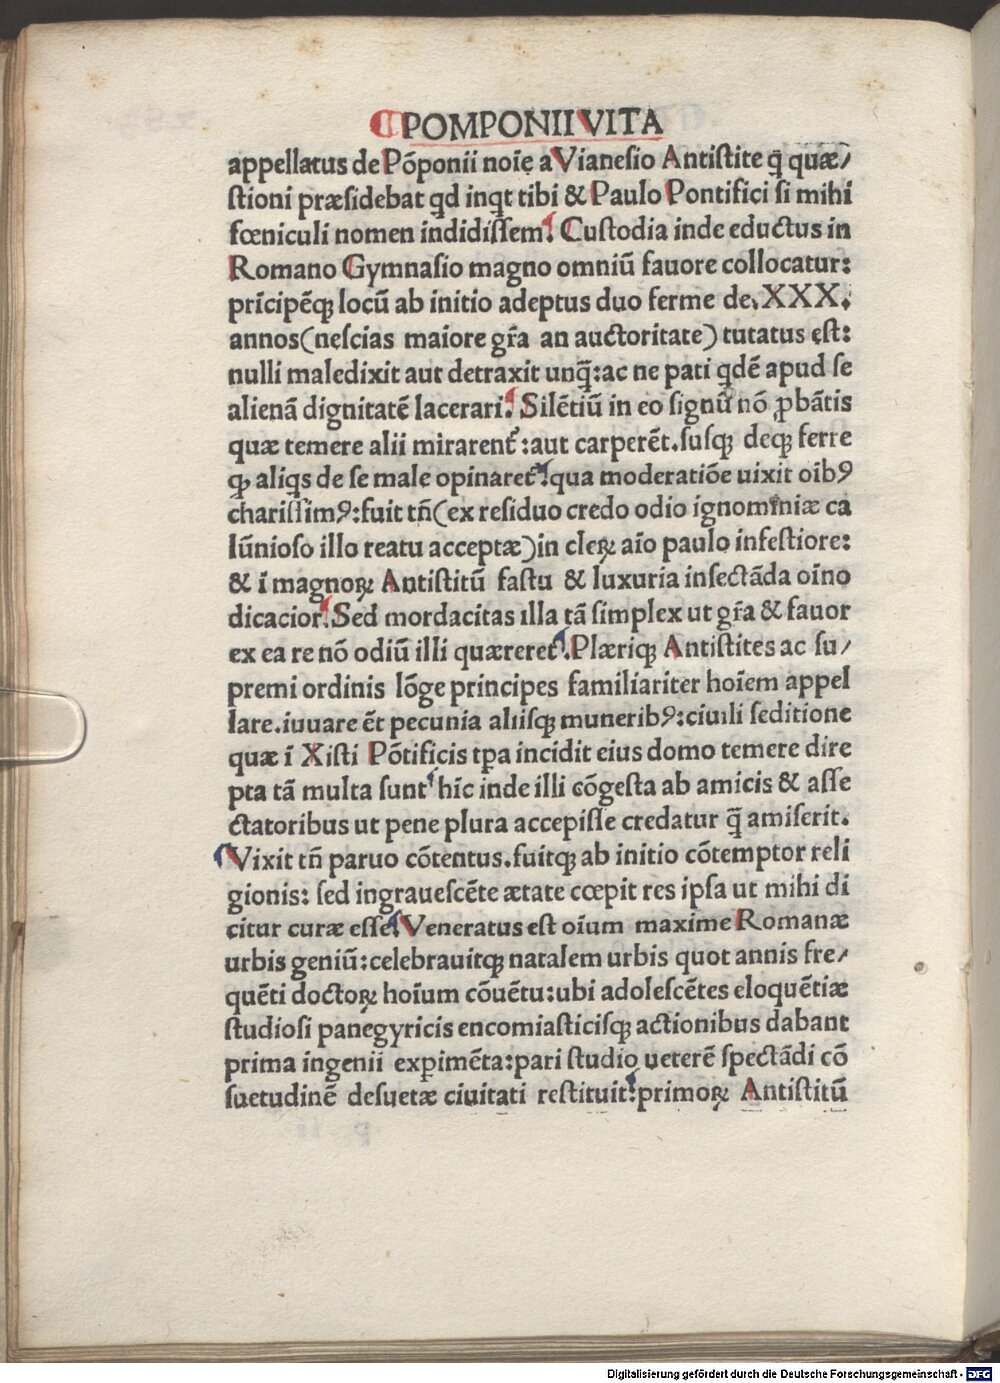 POMPONII VITA
appellatus de Põponii noiẽ a Vianesio Antistite q̃ quæ/
ſtioni præſidebat qd inqt tibi & Paulo Pontifici ſi mihi
fœniculi nomen indidiſſem. Cuſtodia inde eductus in
Romano Gymnaſio magno omniũ fauore collocatur:
prĩcipẽq; locũ ab initio adeptus duo ferme de. XXX.
annos (neſcias maiore gr̃a an auctoritate) tutatus eſt:
nulli maledixit aut detraxit unq̃: ac ne pati qdẽ apud ſe
alienã dignitatẽ lacerari. Silẽtiũ in eo ſignũ nõ ꝓbãtis
quæ temere alii mirarent̃: aut carperẽt. ſuſq; deq; ferre
q; aliqs de ſe male opinaret̃: qua moderatiõe uixit oĩbꝰ
chariſſimꝰ: fuit tñ (ex reſiduo credo odio ignominiæ ca
lũnioſo illo reatu acceptæ) in cleꝝ aĩo paulo infeſtiore:
& ĩ magnoꝝ Antiſtitũ faſtu & luxuria inſectãda oĩno
dicacior. Sed mordacitas illa tã ſimplex ut gr̃a & fauor
ex ea re nõ odiũ illi quæreret̃. Plæriq; Antiſtites ac ſu/
premi ordinis lõge principes familiariter hoĩem appel
lare. iuuare ẽt pecunia aliiſq; muneribꝰ: ciuili ſeditione
quæ ĩ Xiſti Põtificis tꝑa incidit eius domo temere dire
pta tã multa ſunt hĩc inde illi cõgeſta ab amicis & aſſe
ctatoribus ut pene plura accepiſſe credatur q̃ amiſerit.
Vixit tñ paruo cõtentus. fuitq; ab initio cõtemptor reli
gionis: ſed ingraueſcẽte ætate cœpit res ipſa ut mihi di
citur curæ eſſe. Veneratus eſt oĩum maxime Romanæ
urbis geniũ: celebrauitq; natalem urbis quot annis fre/
quẽti doctoꝝ hoĩum cõuẽtu: ubi adoleſcẽtes eloquẽtiæ
ſtudioſi panegyricis encomiaſticiſq; actionibus dabant
prima ingenii exꝑimẽta: pari ſtudio ueterẽ ſpectãdi cõ
ſuetudinẽ deſuetæ ciuitati reſtituit: primoꝝ Antiſtitũ
Digitalisierung gefördert durch die Deutsche Forschungsgemeinschaft - DFG